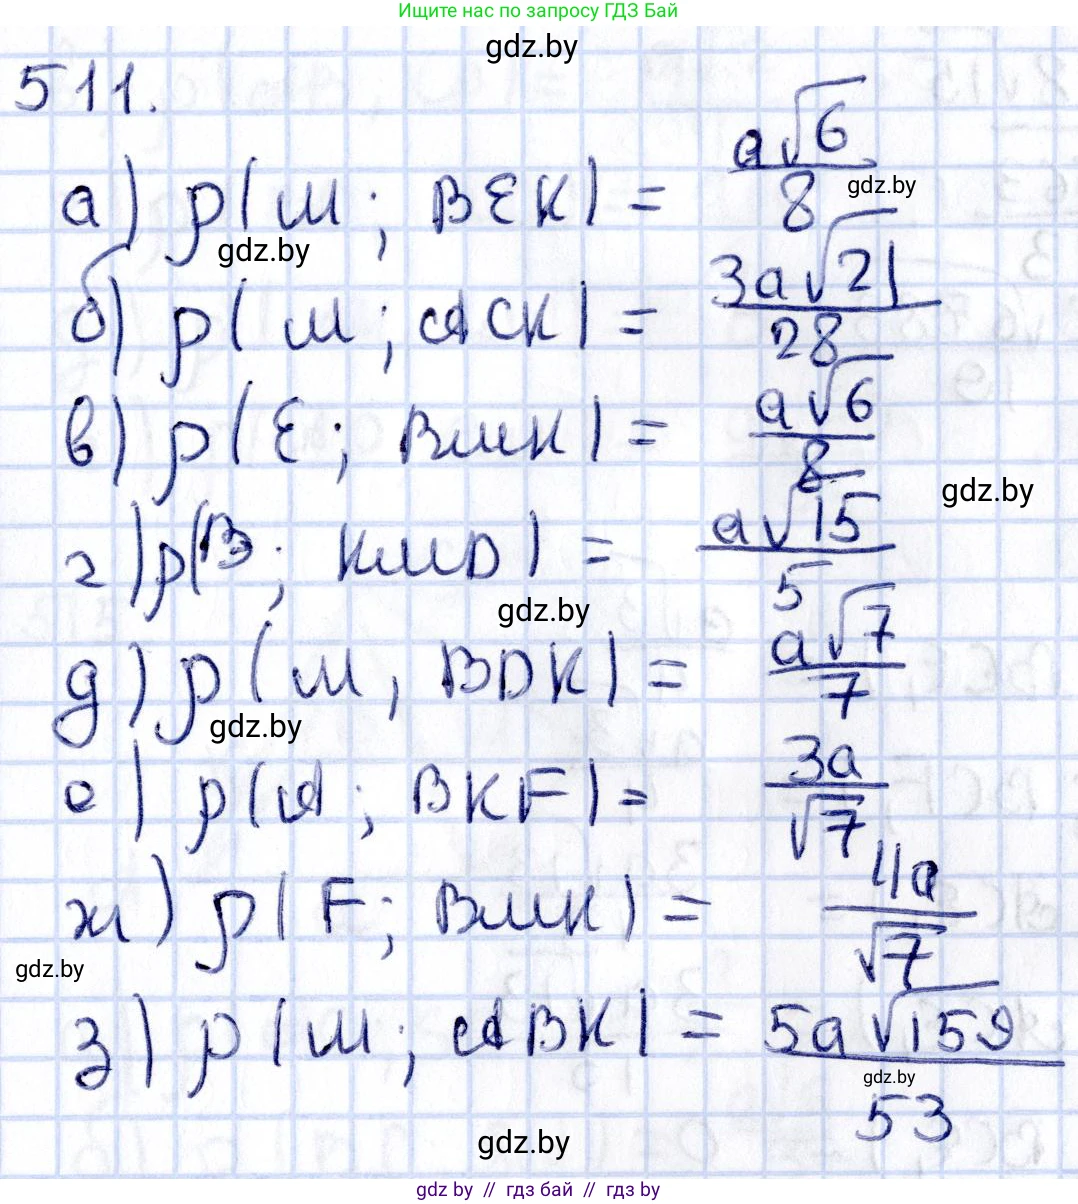 Ищите нас по запросу ГДЗ Бай
gdz.by
511.
а) ρ(M; BEK) = a√6/8
gdz.by
gdz.by
б) ρ(M; ACK) = 3a√21/28
в) ρ(E; BMK) = a√6/8
gdz.by
г) ρ(B; KMD) = a√15/5
gdz.by
д) ρ(M, BDK) = a√7/7
gdz.by
е) ρ(A; BKF) = 3a/√7
ж) ρ(F; BMK) = 4a/√7
gdz.by
з) ρ(M; ABK) = 5a√159/53
gdz.by
gdz.by
gdz.by // гдз бай // gdz.by